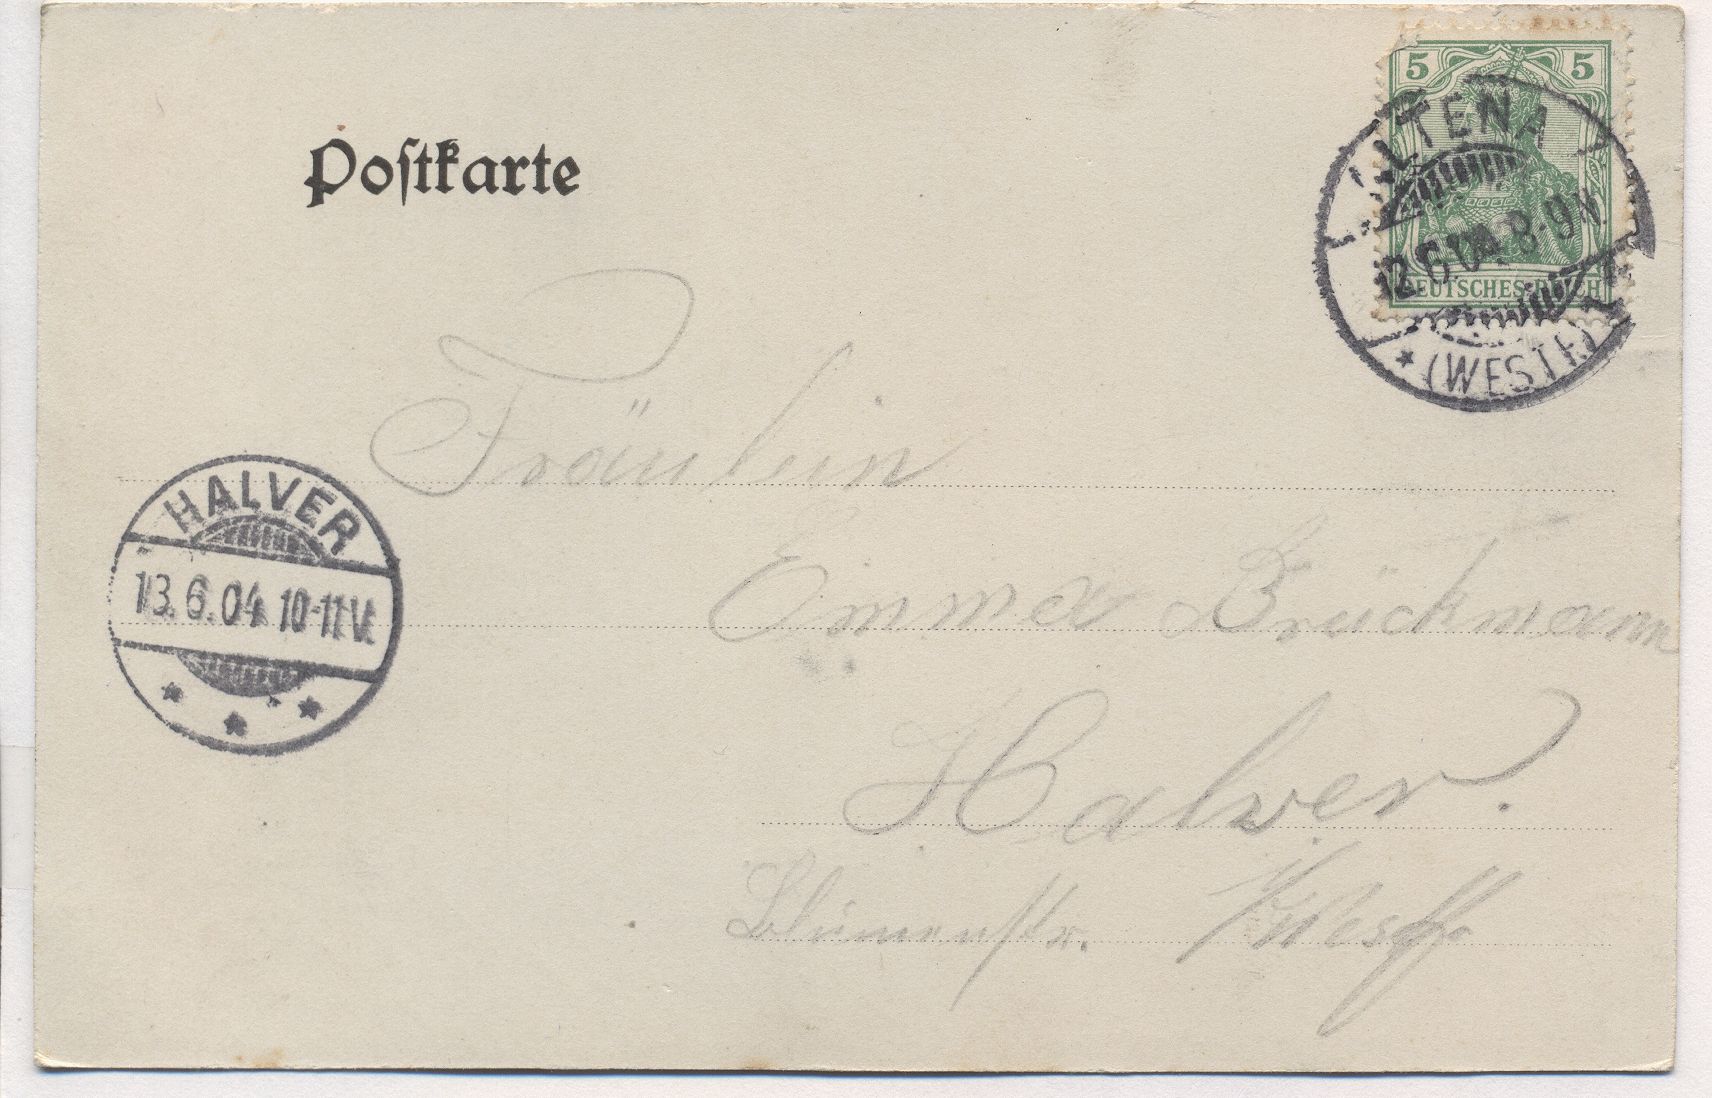 Postkarte
5 5
DEUTSCHES REICH
ALTENA
12.6.04. 8-9N.
* (WESTF.)
Fräulein
HALVER
13.6.04. 10-11V.
* * *
Emma Brückmann
Halver.
Blumenstr. i/Westf.